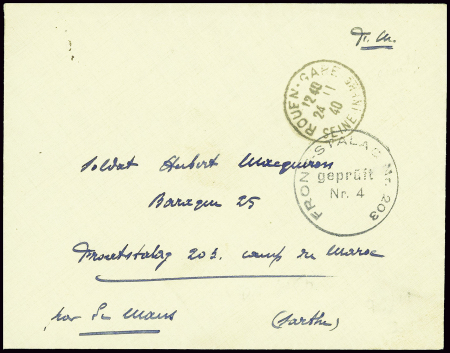 F. M.
ROUEN-GARE
12 40
24 11
40
SEINE
FRONTSTALAG Nr. 203
geprüft
Nr. 4
Soldat Hubert
Baraque 25
Frontstalag 203. camp du Maroc
par Le Mans (Sarthe)